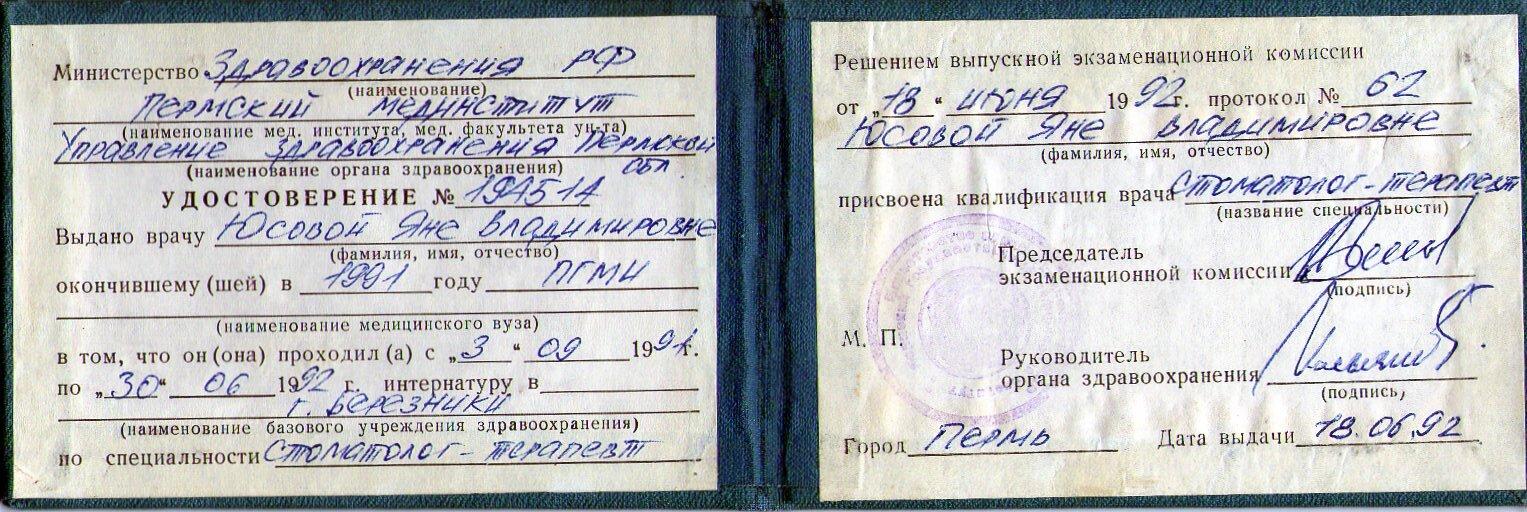 Министерство Здравоохранения РФ
(наименование)
Пермский мединститут
(наименование мед. института, мед. факультета ун-та)
Управление здравоохранения Пермской обл.
(наименование органа здравоохранения)
УДОСТОВЕРЕНИЕ № 194514
Выдано врачу Юсовой Яне Владимировне
(фамилия, имя, отчество)
окончившему (шей) в 1991 году ПГМИ
(наименование медицинского вуза)
в том, что он (она) проходил (а) с „3" 09 1991 г.
по „30" 06 1992 г. интернатуру в
г. Березники
(наименование базового учреждения здравоохранения)
по специальности Стоматолог-терапевт
Решением выпускной экзаменационной комиссии
от „18" июня 1992 г. протокол № 62
Юсовой Яне Владимировне
(фамилия, имя, отчество)
присвоена квалификация врача стоматолог-терапевт
(название специальности)
Председатель
экзаменационной комиссии
(подпись)
М. П.
Руководитель
органа здравоохранения
(подпись)
Город Пермь Дата выдачи 18.06.92